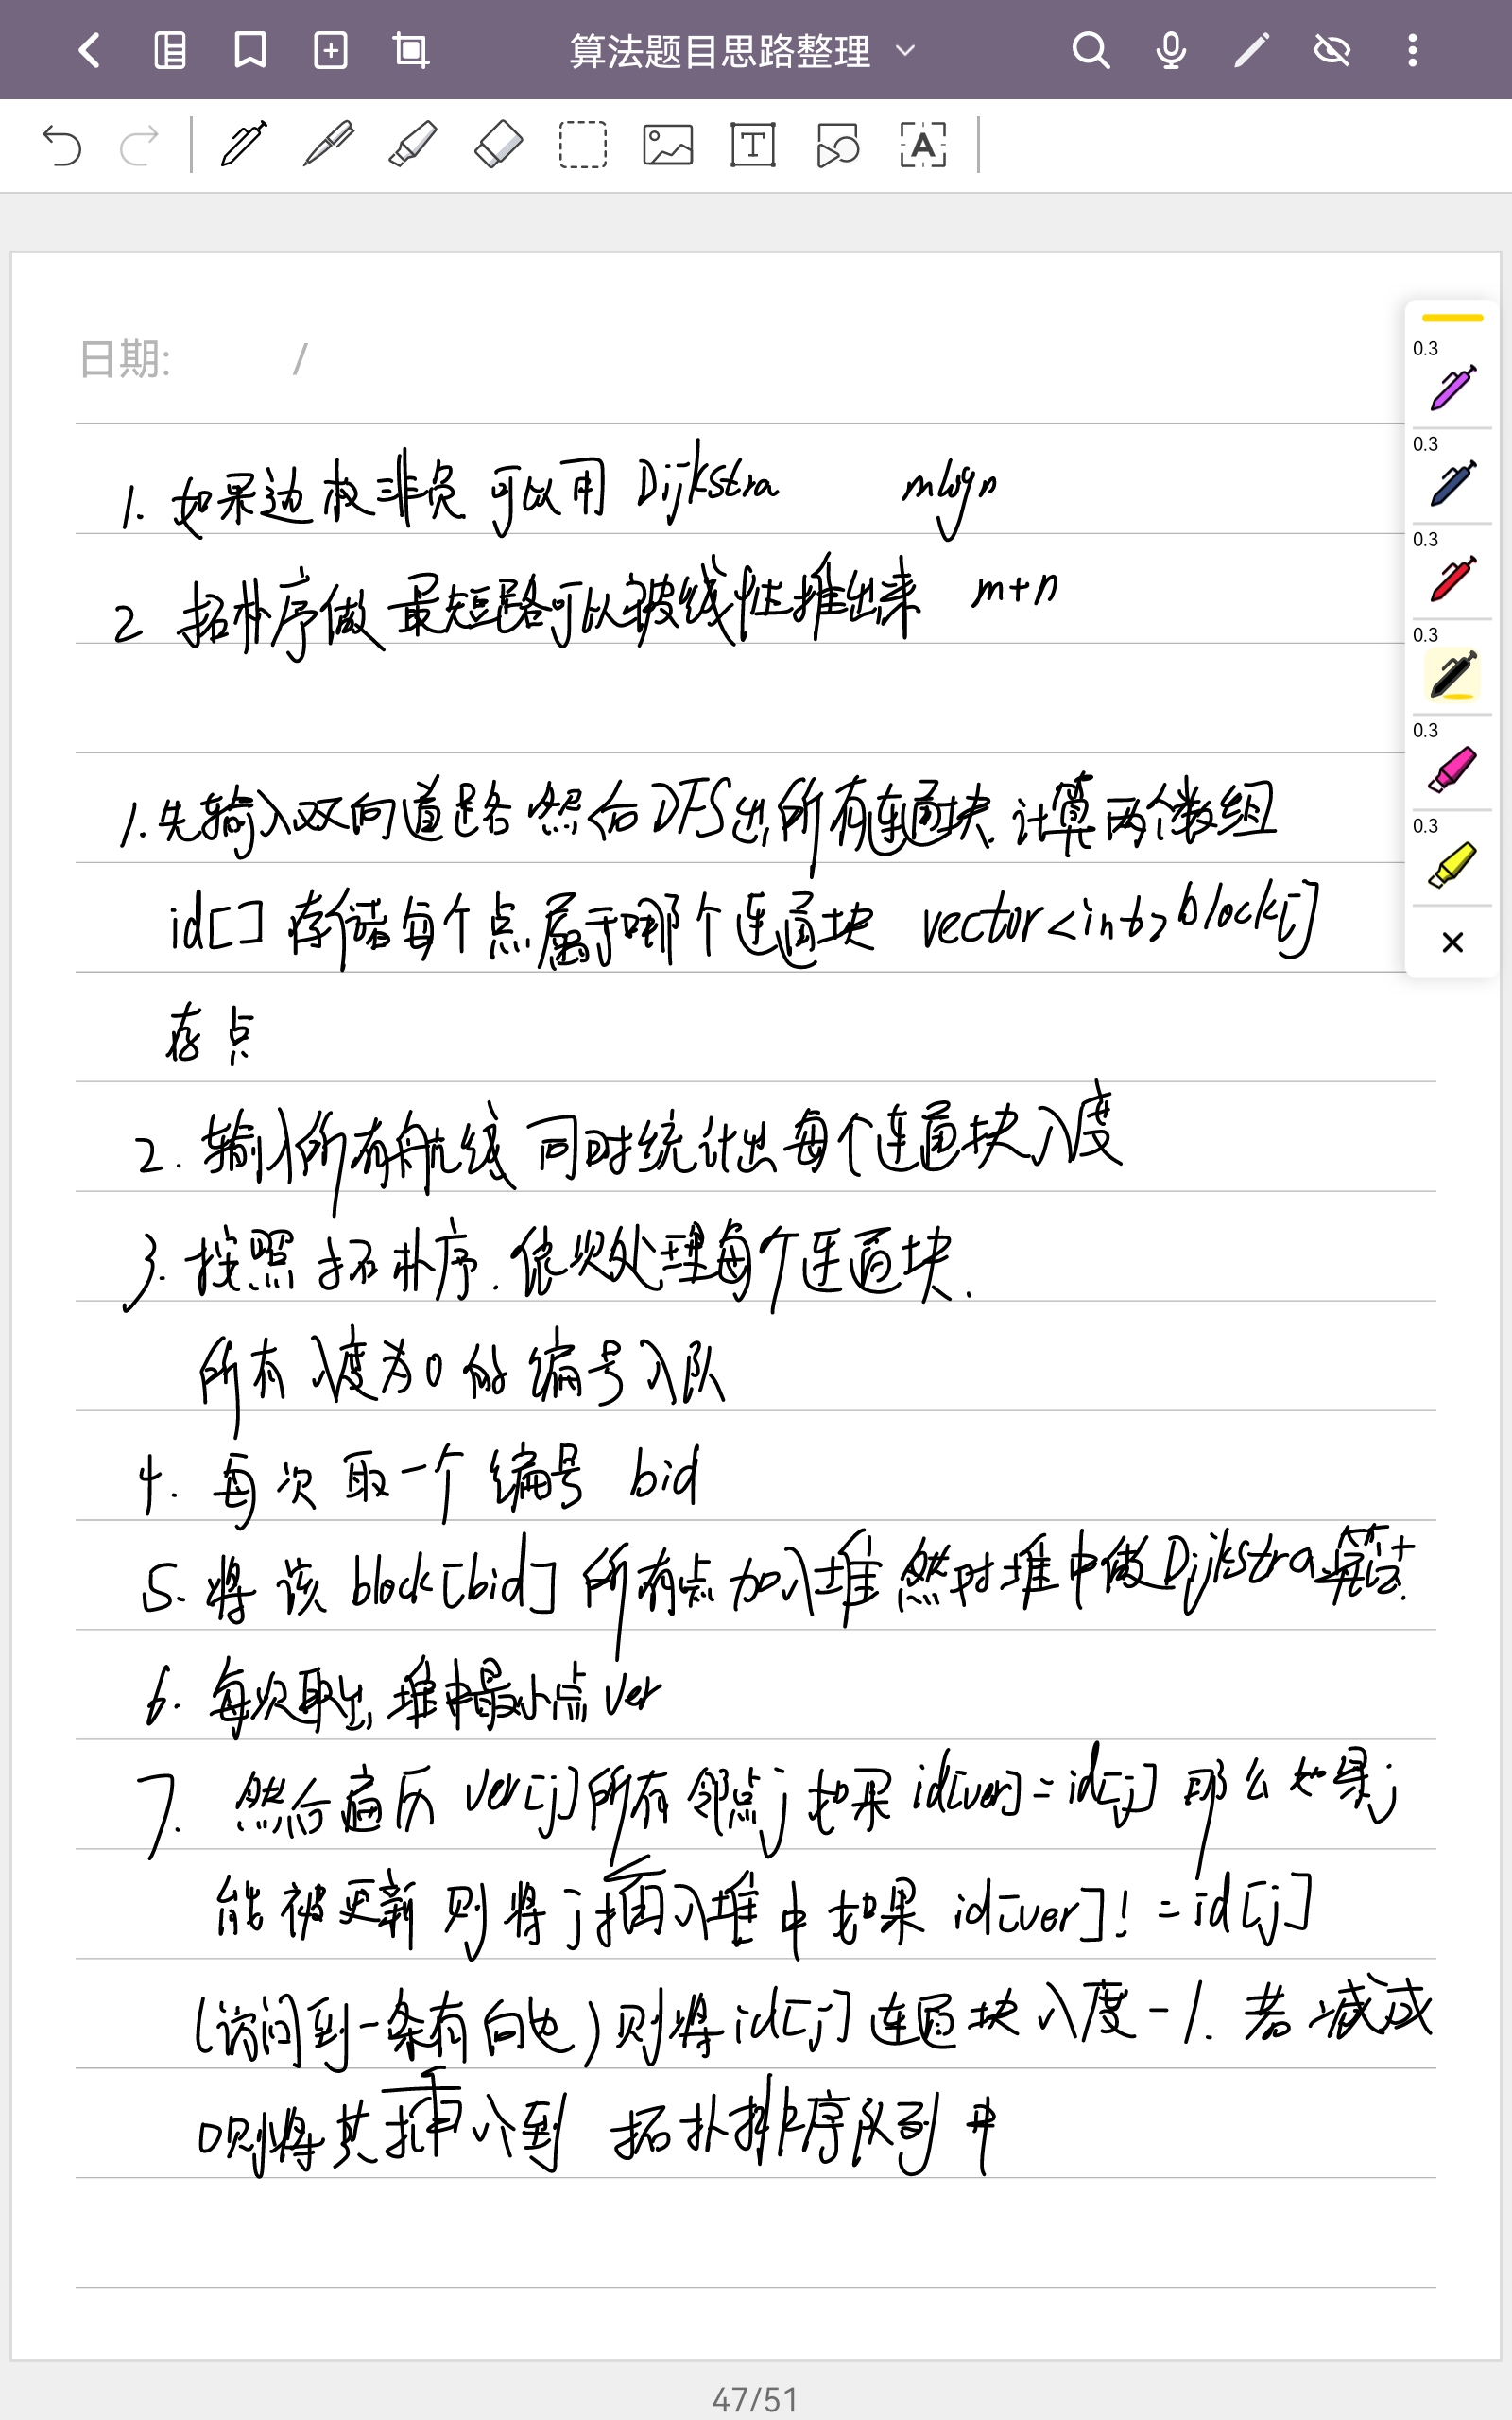 算法题目思路整理
日期: /
0.3
0.3
0.3
0.3
0.3
0.3
1. 如果边权非负 可以用 Dijkstra mlogn
2 拓朴序做 最短路可以被线性推出来 m+n
1. 先输入双向道路 然后 DFS出所有连通块. 计算两个数组
id[] 存储每个点属于哪个连通块 vector<int>block[]
存点
2. 输入所有航线 同时统计出每个连通块入度
3. 按照拓朴序. 依次处理每个连通块.
所有入度为0的编号入队
4. 每次取一个编号 bid
5. 将该 block[bid] 所有点加入堆 然对堆中做Dijkstra算法.
6. 每次取出堆中最小点ver
7. 然后遍历 ver[j]所有邻点j 如果 id[ver]=id[j] 那么如果j
能被更新 则将j插入堆中 如果 id[ver]!=id[j]
(访问到一条有向边)则将id[j]连通块入度-1. 若减成
0则将其插入到 拓扑排序队列中
47/51